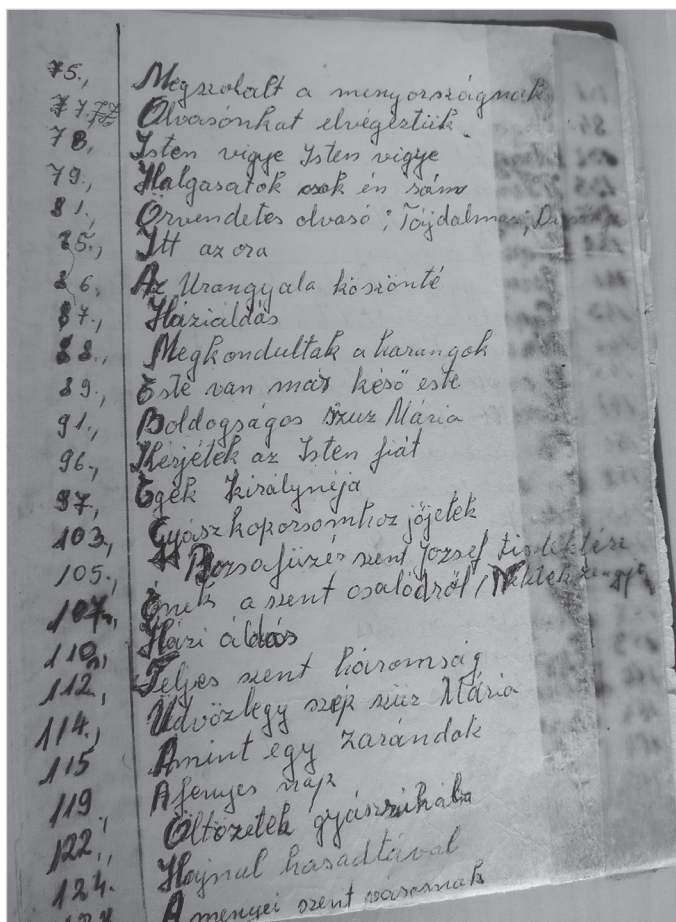 75., Megszolalt a menyországnak
77. Olvasónkat elvégeztük
78, Isten vigye Isten vigye
79, Halgasatok csak én rám
81., Örvendetes olvasó; Fájdalmas;
85., Itt az ora
86, Az Urangyala köszönté
87., Háziáldás
88., Megkondultak a harangok
89., Este van már késő este
91., Boldogságos Szuz Mária
96., Kérjétek az Isten fiát
97, Egek Királynéja
103., Gyász koporsomhoz jöjetek
105., Rozsafüzér szent Jozsef tiszteletére
107., Ének a szent családról
110, Házi áldás
112, Teljes szent háromság
114., Üdvözlegy szép szüz Mária
115 Amint egy zarándok
119 A fenyes nap
122., Öltözetek gyászruhába
124. Hajnal hasadtával
A menyei szent